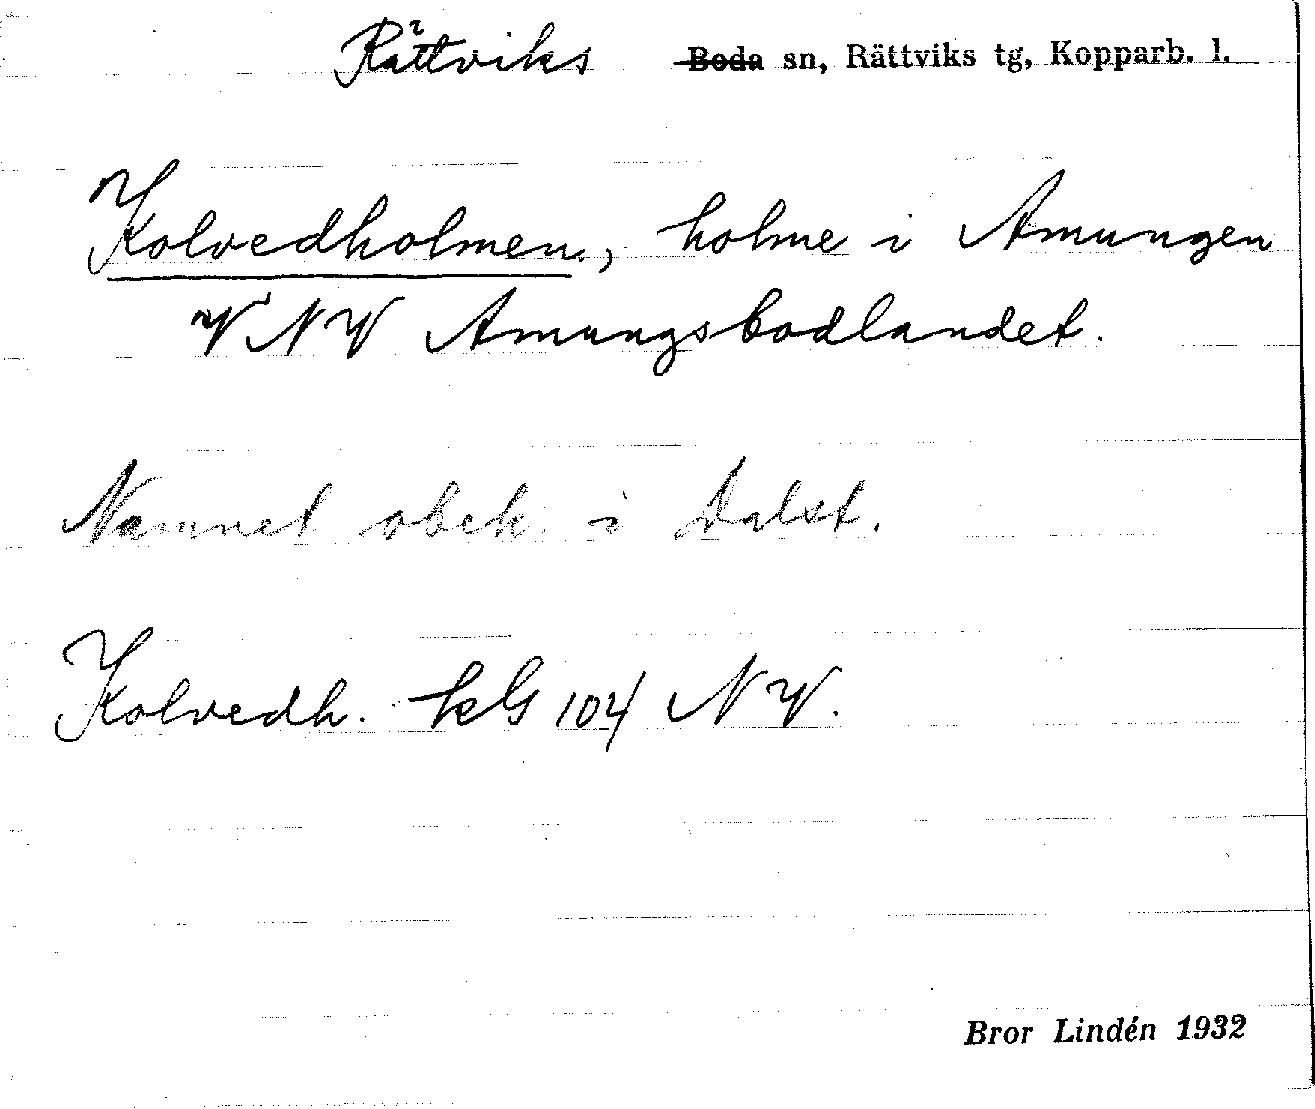 Rättviks Boda sn, Rättviks tg, Kopparb. l.
Kolvedholmen, holme i Amungen
VNV Amungsbodlandet.
Namnet obek i Dalst.
Kolvedh. kG 104 NV.
Bror Lindén 1932